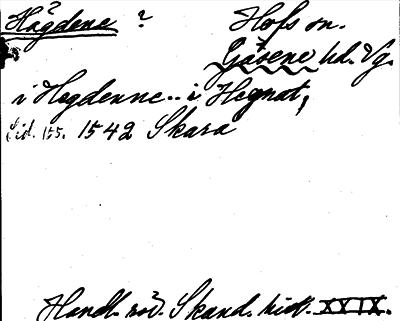 Hågdene ? Hofs sn.
Gäsene hd. Vg.
i Hogdenne.. i Hognat,
Sid. 155. 1542 Skara
Handl. röR. Skand. hist. XXIX.